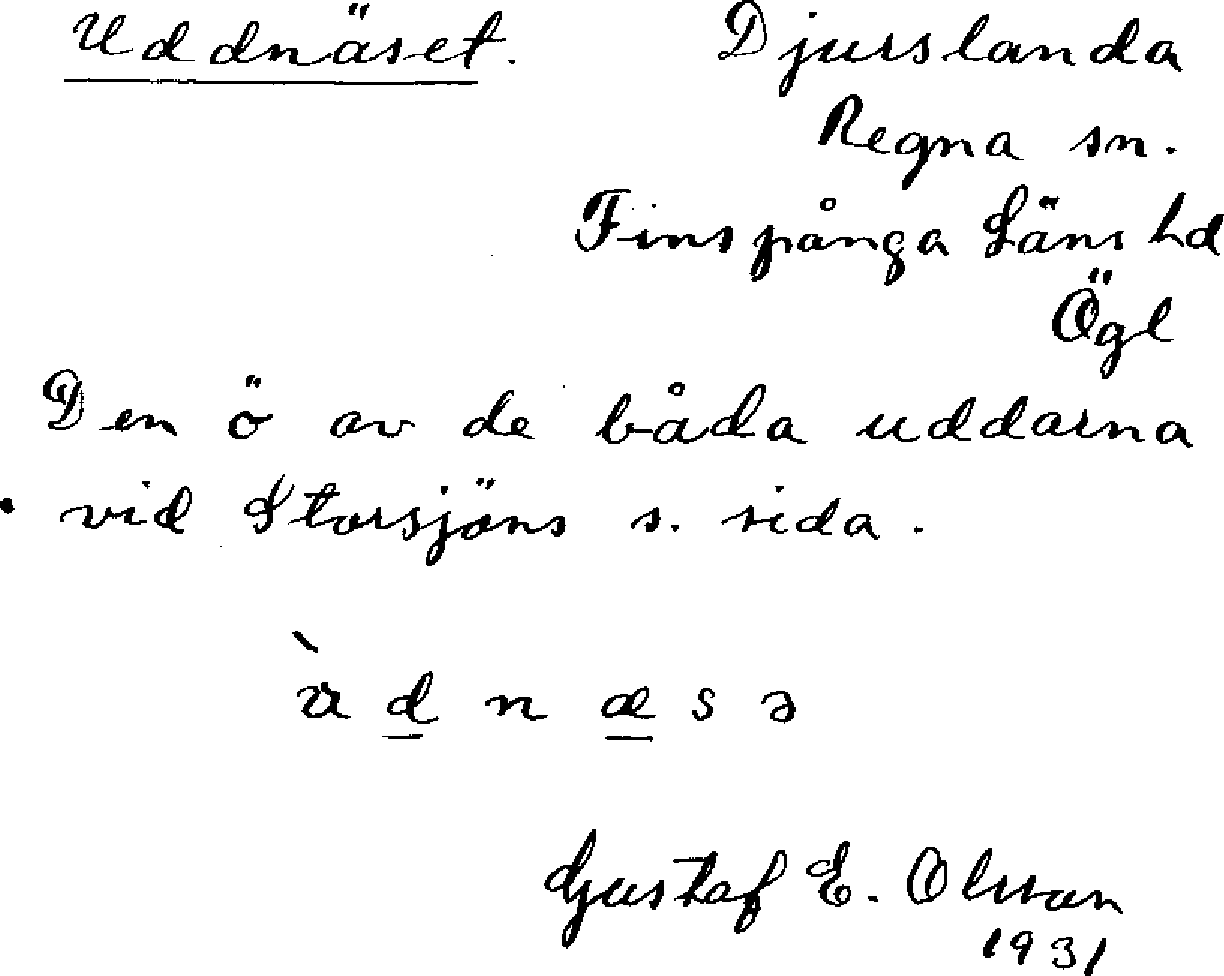 Uddnäset. Djurslanda
Regna sn.
Finspånga Läns hd
Ögl
Den ö av de båda uddarna
vid Storsjöns s. sida.
Gustaf E. Olsson
1931